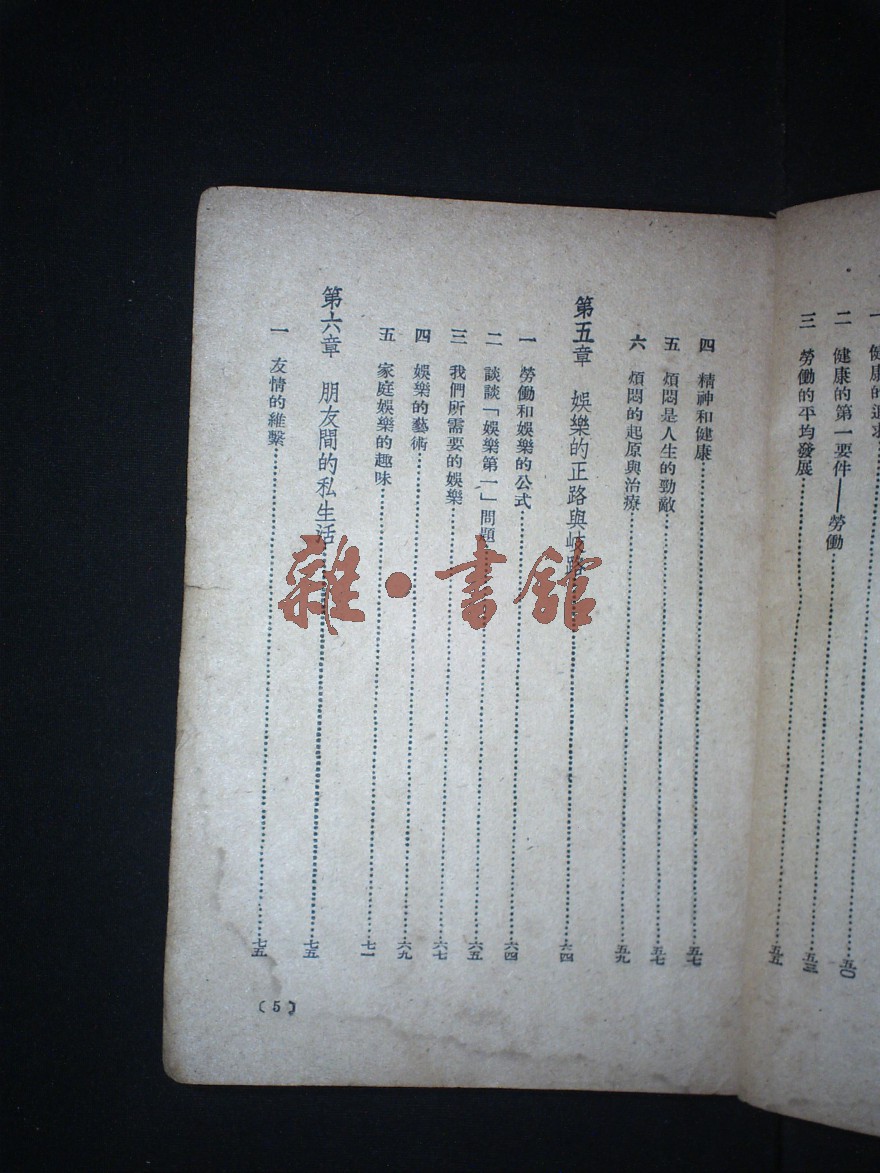 一 健康的追求
二 健康的第一要件——勞働 五〇
三 勞働的平均發展 五三
五五
四 精神和健康 五七
五 煩悶是人生的勁敵 五七
六 煩悶的起原與治療 五九
第五章 娛樂的正路與岐路 六四
一 勞働和娛樂的公式 六四
二 談談「娛樂第一」問題 六五
三 我們所需要的娛樂 六七
四 娛樂的藝術 六九
五 家庭娛樂的趣味 七一
第六章 朋友間的私生活 七五
一 友情的維繫 七五
(5)
雜·書館